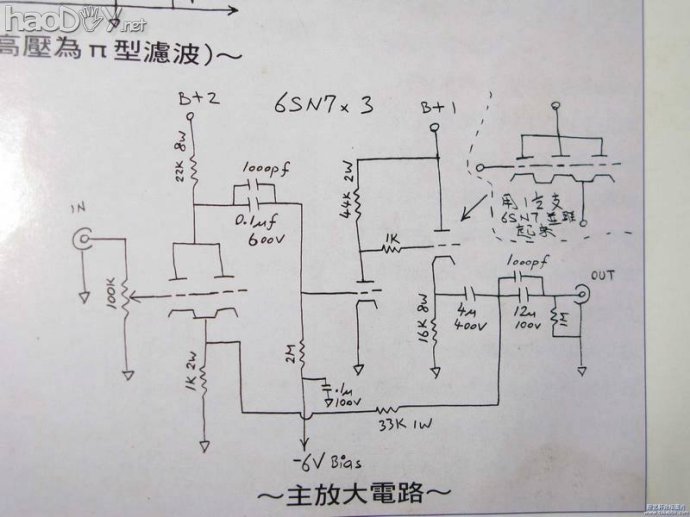 haoDIY.net
高壓為π型濾波)～
B+2
6SN7 x 3
B+1
22K 8W
1000pf
0.1μf
600V
44K 2W
1K
用1.5支
6SN7並聯
起來
IN
100K
1K 2W
2M
.1μ
100V
16K 8W
4μ
400V
1000pf
12μ
100V
OUT
1M
33K 1W
-6V Bias
～主放大電路～